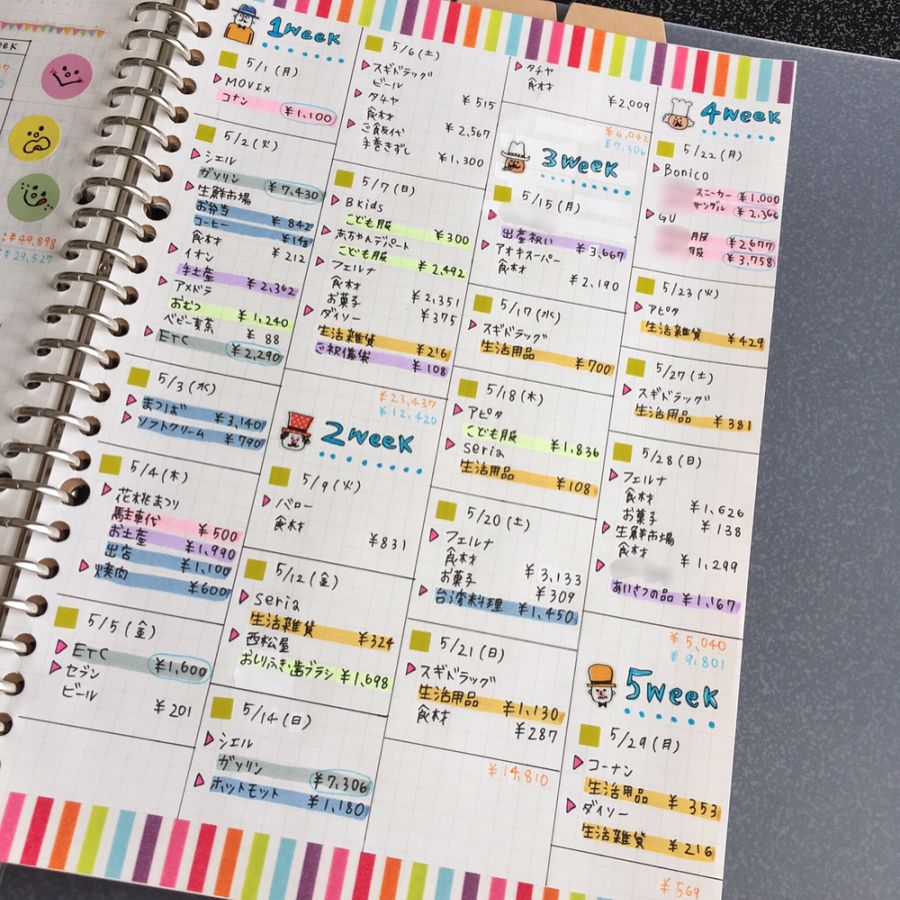 eek
¥49,898
29,527
1week
5/1(月)
MOVIX
コナン ¥1,100
5/2(火)
シェル
ガソリン ¥7,430
生鮮市場
お弁当 ¥842
コーヒー ¥198
食材 ¥212
イオン
手土産 ¥2,362
アメドラ
おむつ ¥1,240
ベビー麦茶 ¥88
ETC ¥2,290
5/3(水)
まつば ¥3,140
ソフトクリーム ¥790
5/4(木)
花桃まつり
駐車代 ¥500
お土産 ¥1,990
出店 ¥1,100
焼肉 ¥600
5/5(金)
ETC ¥1,600
セブン
ビール ¥201
5/6(土)
スギドラッグ
ビール ¥515
タチヤ
食材 ¥2,567
ご飯代
手巻きずし ¥1,300
5/7(日)
Bkids
こども服 ¥300
赤ちゃんデパート
こども服 ¥2,492
フェルナ
食材 ¥2,351
お菓子 ¥375
ダイソー
生活雑貨 ¥216
ご祝儀袋 ¥108
¥23,437
¥12,420
2week
5/9(火)
バロー
食材 ¥831
5/12(金)
seria
生活雑貨 ¥324
西松屋
おしりふき・歯ブラシ ¥1,698
5/14(日)
シェル
ガソリン ¥7,306
ホットモット ¥1,180
タチヤ
食材 ¥2,009
¥6,042
¥7,306
3week
5/15(月)
出産祝い ¥3,667
アオキスーパー
食材 ¥2,190
5/17(水)
スギドラッグ
生活用品 ¥700
5/18(木)
アピタ
こども服 ¥1,836
seria
生活用品 ¥108
5/20(土)
フェルナ
食材 ¥3,133
お菓子 ¥309
台湾料理 ¥1,450
5/21(日)
スギドラッグ
生活用品 ¥1,130
食材 ¥287
¥14,810
4week
5/22(月)
Bonico
スニーカー ¥1,000
サンダル ¥2,366
GU
服 ¥2,677
服 ¥3,758
5/23(火)
アピタ
生活雑貨 ¥429
5/27(土)
スギドラッグ
生活用品 ¥381
5/28(日)
フェルナ
食材 ¥1,626
お菓子 ¥138
生鮮市場
食材 ¥1,299
あいさつの品 ¥1,167
¥5,040
¥9,801
5week
5/29(月)
コーナン
生活用品 ¥353
ダイソー
生活雑貨 ¥216
¥569